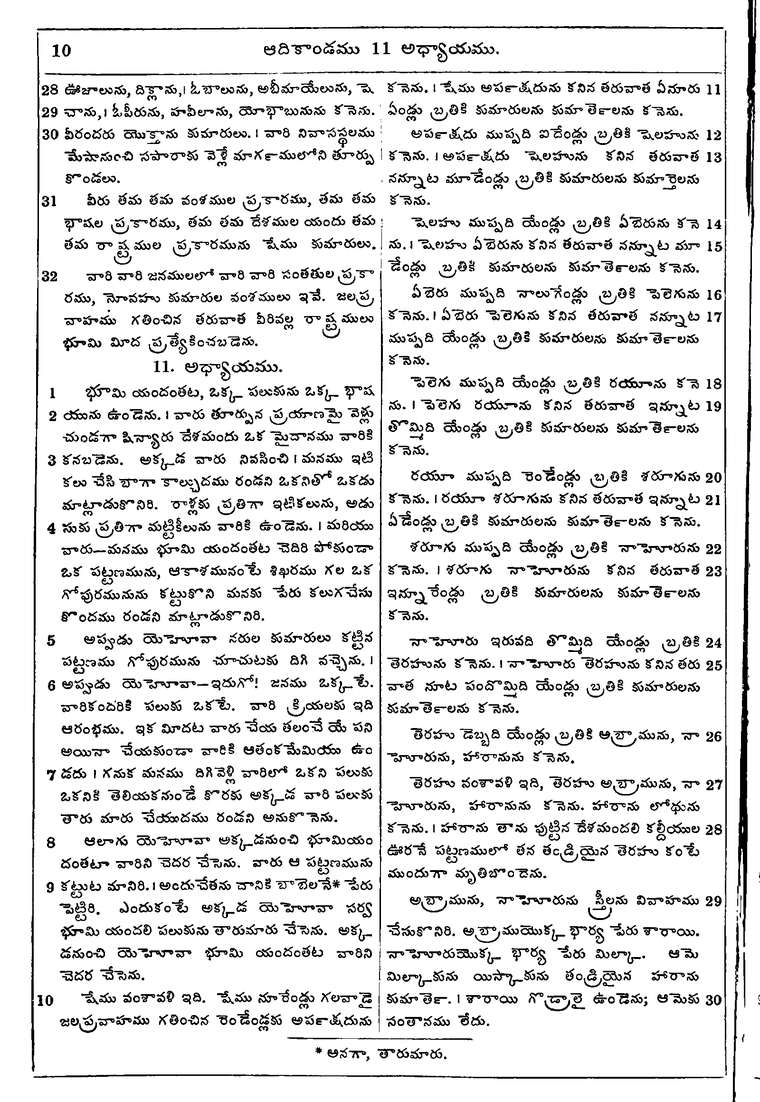 10 ఆదికాండము 11 అధ్యాయము.
28 ఊజాలును, దిక్లాను,। ఓబాలును, అబీమాయేలును, షె
29 బాను,। ఓపీరును, హవీలాను, యోభాబునును కనెను.
30 వీరందరు యొక్తాను కుమారులు.। వారి నివాసస్థలము
మేషానుంచి సపారాకు వెళ్లే మార్గములోని తూర్పు
కొండలు.
31 వీరు తమ తమ వంశముల ప్రకారము, తమ తమ
భాషల ప్రకారము, తమ తమ దేశముల యందు తమ
తమ రాష్ట్రముల ప్రకారమును షేము కుమారులు.
32 వారి వారి జనములలో వారి వారి సంతతుల ప్రకా
రము, నోవహు కుమారుల వంశములు ఇవే. జలప్ర
వాహము గతించిన తరువాత వీరివల్ల రాష్ట్రములు
భూమి మీద ప్రత్యేకించబడెను.
11. అధ్యాయము.
1 భూమి యందంతట, ఒక్క పలుకును ఒక్క భాష
2 యును ఉండెను.। వారు తూర్పున ప్రయాణమై వెళ్లు
చుండగా షిన్యారు దేశమందు ఒక మైదానము వారికి
3 కనబడెను. అక్కడ వారు నివసించి। మనము ఇటి
కలు చేసి బాగా కాల్చుదము రండని ఒకనితో ఒకడు
మాట్లాడుకొనిరి. రాళ్లకు ప్రతిగా ఇటికలును, అడు
4 సుకు ప్రతిగా మట్టికీలును వారికి ఉండెను.। మరియు
వారు—మనము భూమి యందంతట చెదిరి పోకుండా
ఒక పట్టణమును, ఆకాశమునంటే శిఖరము గల ఒక
గోపురమునును కట్టుకొని మనకు పేరు కలుగచేసు
కొందము రండని మాట్లాడుకొనిరి.
5 అప్పుడు యెహోవా నరుల కుమారులు కట్టిన
పట్టణము గోపురమును చూచుటకు దిగి వచ్చెను.।
6 అప్పుడు యెహోవా—ఇదుగో! జనము ఒక్కటే.
వారికందరికి పలుకు ఒకటే. వారి క్రియలకు ఇది
ఆరంభము. ఇక మీదట వారు చేయ తలంచే యే పని
అయినా చేయకుండా వారికి ఆతంకమేమియు ఉం
7 డదు। గనుక మనము దిగివెళ్లి వారిలో ఒకని పలుకు
ఒకనికి తెలియకనుండే కొరకు అక్కడ వారి పలుకు
తారు మారు చేయుదము రండని అనుకొనెను.
8 ఆలాగు యెహోవా అక్కడనుంచి భూమియం
దంతటా వారిని చెదర చేసెను. వారు ఆ పట్టణమును
9 కట్టుట మానిరి.। అందుచేతను దానికి బాబెలనే* పేరు
పెట్టిరి. ఎందుకంటే అక్కడ యెహోవా సర్వ
భూమి యందలి పలుకును తారుమారు చేసెను. అక్క
డనుంచి యెహోవా భూమి యందంతట వారిని
చెదర చేసెను.
10 షేము వంశావళి ఇది. షేము నూరేండ్లు గలవాడై
జలప్రవాహము గతించిన రెండేండ్లకు అర్పక్షదును
కనెను.। షేము అర్పక్షదును కనిన తరువాత ఏనూరు 11
ఏండ్లు బ్రతికి కుమారులను కుమార్తెలను కనెను.
అర్పక్షదు ముప్పది ఐదేండ్లు బ్రతికి షెలహును 12
కనెను.। అర్పక్షదు షెలహును కనిన తరువాత 13
నన్నూట మూడేండ్లు బ్రతికి కుమారులను కుమార్తెలను
కనెను.
షెలహు ముప్పది యేండ్లు బ్రతికి ఏబెరును కనె 14
ను.। షెలహు ఏబెరును కనిన తరువాత నన్నూట మూ 15
డేండ్లు బ్రతికి కుమారులను కుమార్తెలను కనెను.
ఏబెరు ముప్పది నాలుగేండ్లు బ్రతికి పెలెగును 16
కనెను.। ఏబెరు పెలెగును కనిన తరువాత నన్నూట 17
ముప్పది యేండ్లు బ్రతికి కుమారులను కుమార్తెలను
కనెను.
పెలెగు ముప్పది యేండ్లు బ్రతికి రయూను కనె 18
ను.। పెలెగు రయూను కనిన తరువాత ఇన్నూట 19
తొమ్మిది యేండ్లు బ్రతికి కుమారులను కుమార్తెలను
కనెను.
రయూ ముప్పది రెండేండ్లు బ్రతికి శరూగును 20
కనెను.। రయూ శరూగును కనిన తరువాత ఇన్నూట 21
ఏడేండ్లు బ్రతికి కుమారులను కుమార్తెలను కనెను.
శరూగు ముప్పది యేండ్లు బ్రతికి నాహోరును 22
కనెను.। శరూగు నాహోరును కనిన తరువాత 23
ఇన్నూరేండ్లు బ్రతికి కుమారులను కుమార్తెలను
కనెను.
నాహోరు ఇరువది తొమ్మిది యేండ్లు బ్రతికి 24
తెరహును కనెను.। నాహోరు తెరహును కనిన తరు 25
వాత నూట పందొమ్మిది యేండ్లు బ్రతికి కుమారులను
కుమార్తెలను కనెను.
తెరహు డెబ్బది యేండ్లు బ్రతికి అబ్రామును, నా 26
హోరును, హారానును కనెను.
తెరహు వంశావళి ఇది, తెరహు అబ్రామును, నా 27
హోరును, హారానును కనెను. హారాను లోథును
కనెను.। హారాను తాను పుట్టిన దేశమందలి కల్దీయుల 28
ఊరనే పట్టణములో తన తండ్రియైన తెరహు కంటే
ముందుగా మృతిబొందెను.
అబ్రామును, నాహోరును స్త్రీలను వివాహము 29
చేసుకొనిరి. అబ్రాముయొక్క భార్య పేరు శారాయి.
నాహోరుయొక్క భార్య పేరు మిల్కా. ఆమె
మిల్కాకును యిస్కాకును తండ్రియైన హారాను
కుమార్తె.। శారాయి గొడ్రాలై ఉండెను; ఆమెకు 30
సంతానము లేదు.
* అనగా, తారుమారు.